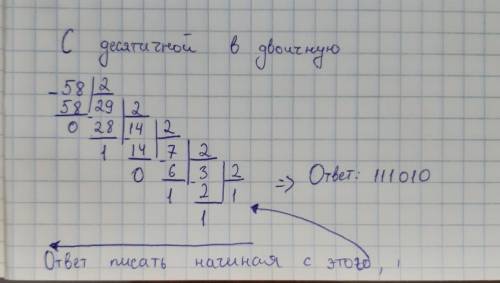 С десятичной в двоичную
-58 | 2
58 29 | 2
0 28 -14 | 2
1 14 -7 | 2
0 6 -3 | 2
1 2 1
1
=> Ответ: 111010
Ответ писать начиная с этого,